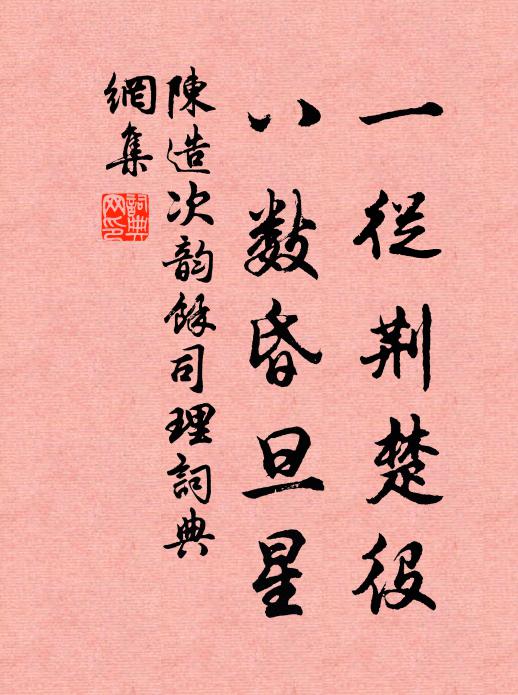 一從荆楚役
八數昏旦星
陳造次韵餘司理詞典
網集
詞典
网印